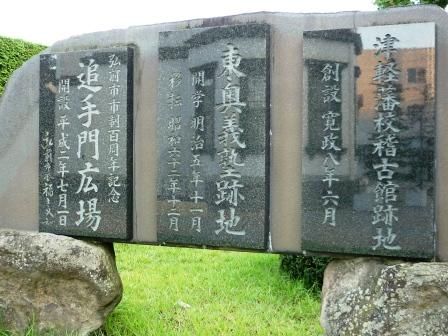 津軽藩校稽古館跡地
創設 寛政八年六月
東奥義塾跡地
開学 明治五年十一月
移転 昭和六十二年十二月
弘前市市制百周年記念
追手門広場
開設 平成二年七月一日